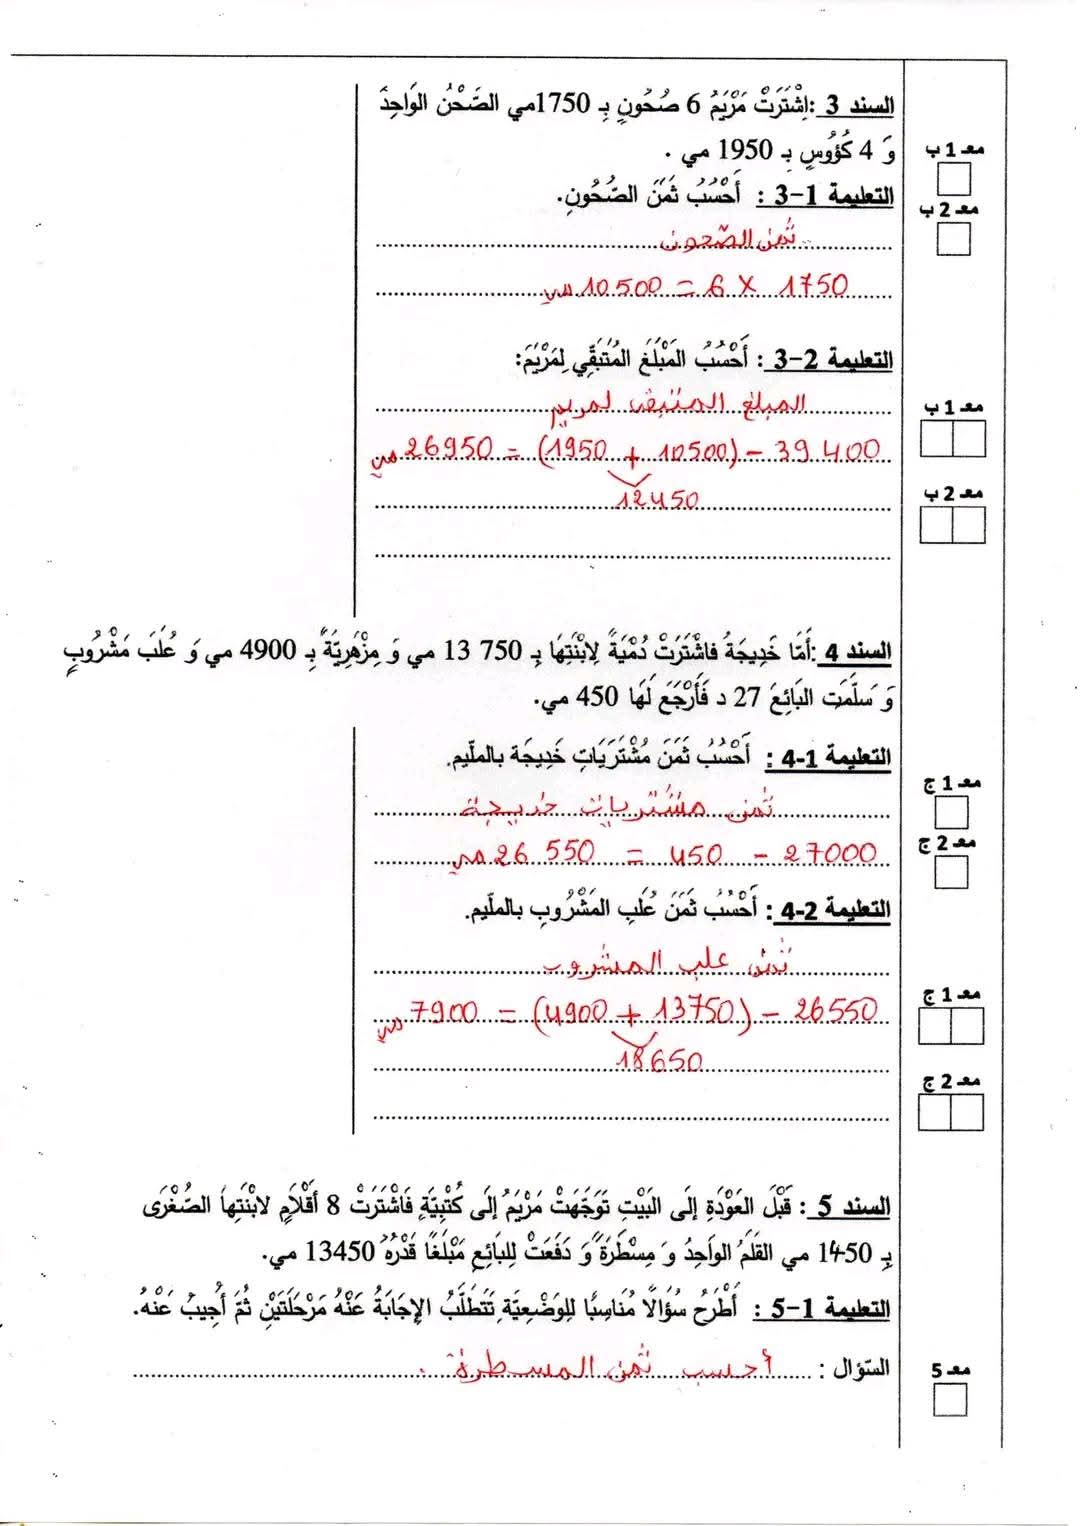 السند 3 :اِشْتَرَتْ مَرْيَمُ 6 صُحُونٍ بِـ 1750مي الصَّحْنُ الوَاحِدُ
وَ 4 كُؤُوسٍ بـ 1950 مي .
معـ 1 ب
التعليمة 1-3 : أَحْسُبُ ثَمَنَ الصُّحُونِ.
معـ 2 ب
ثمن الصّحون
1750 × 6 = 10500 مي
التعليمة 2-3 : أَحْسُبُ المَبْلَغَ المُتَبَقِّي لِمَرْيَمَ:
المبلغ المتبقي لمريم
معـ 1 ب
39400 - (10500 + 1950) = 26950 مي
معـ 2 ب
12450
السند 4 :أَمَّا خَدِيجَةُ فاشْتَرَتْ دُمْيَةً لِابْنَتِهَا بِـ 750 13 مي وَ مِزْهَرِيَّةً بِـ 4900 مي وَ عُلَبَ مَشْرُوبٍ
وَ سَلَّمَت البَائِعَ 27 د فَأَرْجَعَ لَهَا 450 مي.
التعليمة 1-4 : أَحْسُبُ ثَمَنَ مُشْتَرَيَاتِ خَدِيجَة بالملّيم.
معـ 1 ج
ثمن مشتريات خديجة
معـ 2 ج
27000 - 450 = 26 550 مي
التعليمة 2-4 : أَحْسُبُ ثَمَنَ عُلَبِ المَشْرُوبِ بالملّيم.
ثمن علب المشروب
معـ 1 ج
26550 - (13750 + 4900) = 7900 مي
18650
معـ 2 ج
السند 5 : قَبْلَ العَوْدَةِ إلَى البَيْتِ تَوَجَّهَتْ مَرْيَمُ إلَى كُتْبِيَّةٍ فَاشْتَرَتْ 8 أقْلَامٍ لابْنَتِهاَ الصُّغْرَى
بِـ 1450 مي القَلَمُ الوَاحِدُ وَ مِسْطَرَةً وَ دَفَعَتْ لِلبَائِعِ مَبْلَغًا قَدْرُهُ 13450 مي.
التعليمة 1-5 : أَطْرَحُ سُؤَالًا مُنَاسِبًا لِلوَضْعِيَّةِ تَتَطَلَّبُ الإجَابَةُ عَنْهُ مَرْحَلَتَيْنِ ثُمَّ أُجِيبُ عَنْهُ.
السّؤال : أحسب ثمن المسطرة .
معـ 5